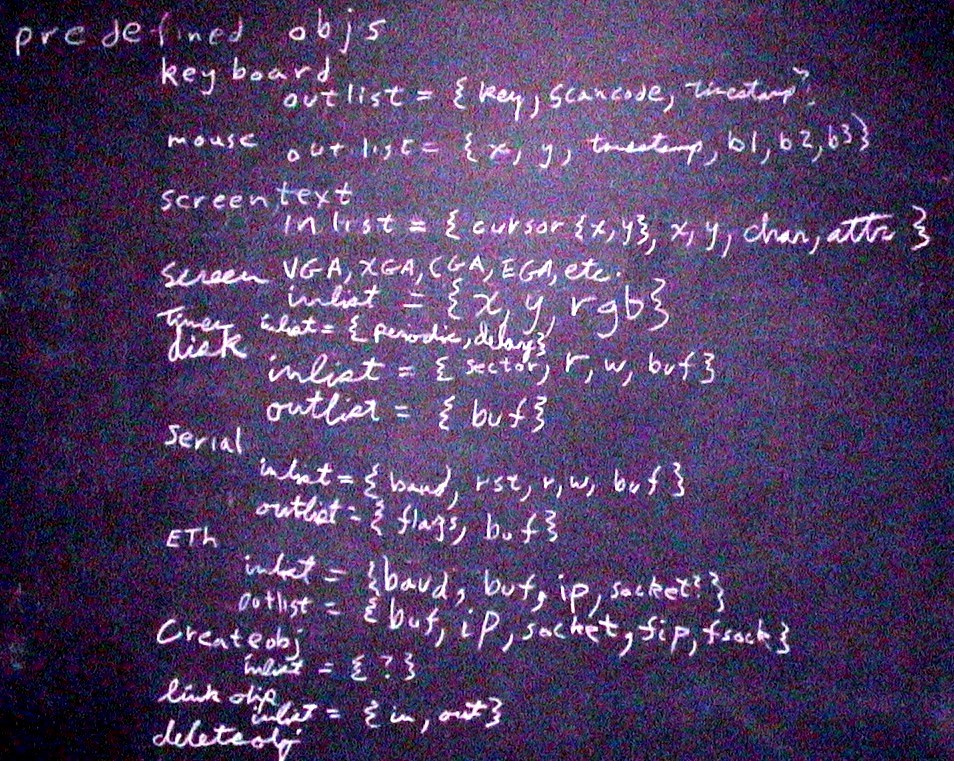 predefined objs
keyboard
outlist = { key, scancode, timestamp}
mouse outlist = { x, y, timestamp, b1, b2, b3}
screen, text
inlist = { cursor {x,y}, x, y, char, attr }
screen VGA, XGA, CGA, EGA, etc.
inlist = {x, y, rgb}
timer inlist = { periodic, delay}
disk
inlist = { sector, r, w, buf }
outlist = { buf}
serial
inlist = { baud, rst, r, w, buf }
outlist = { flags, buf }
ETh
inlist = {baud, buf, ip, socket? }
outlist = { buf, ip, socket, fip, fsock }
Createobj
inlist = { ? }
link
inlist = { in, out}
deleteobj